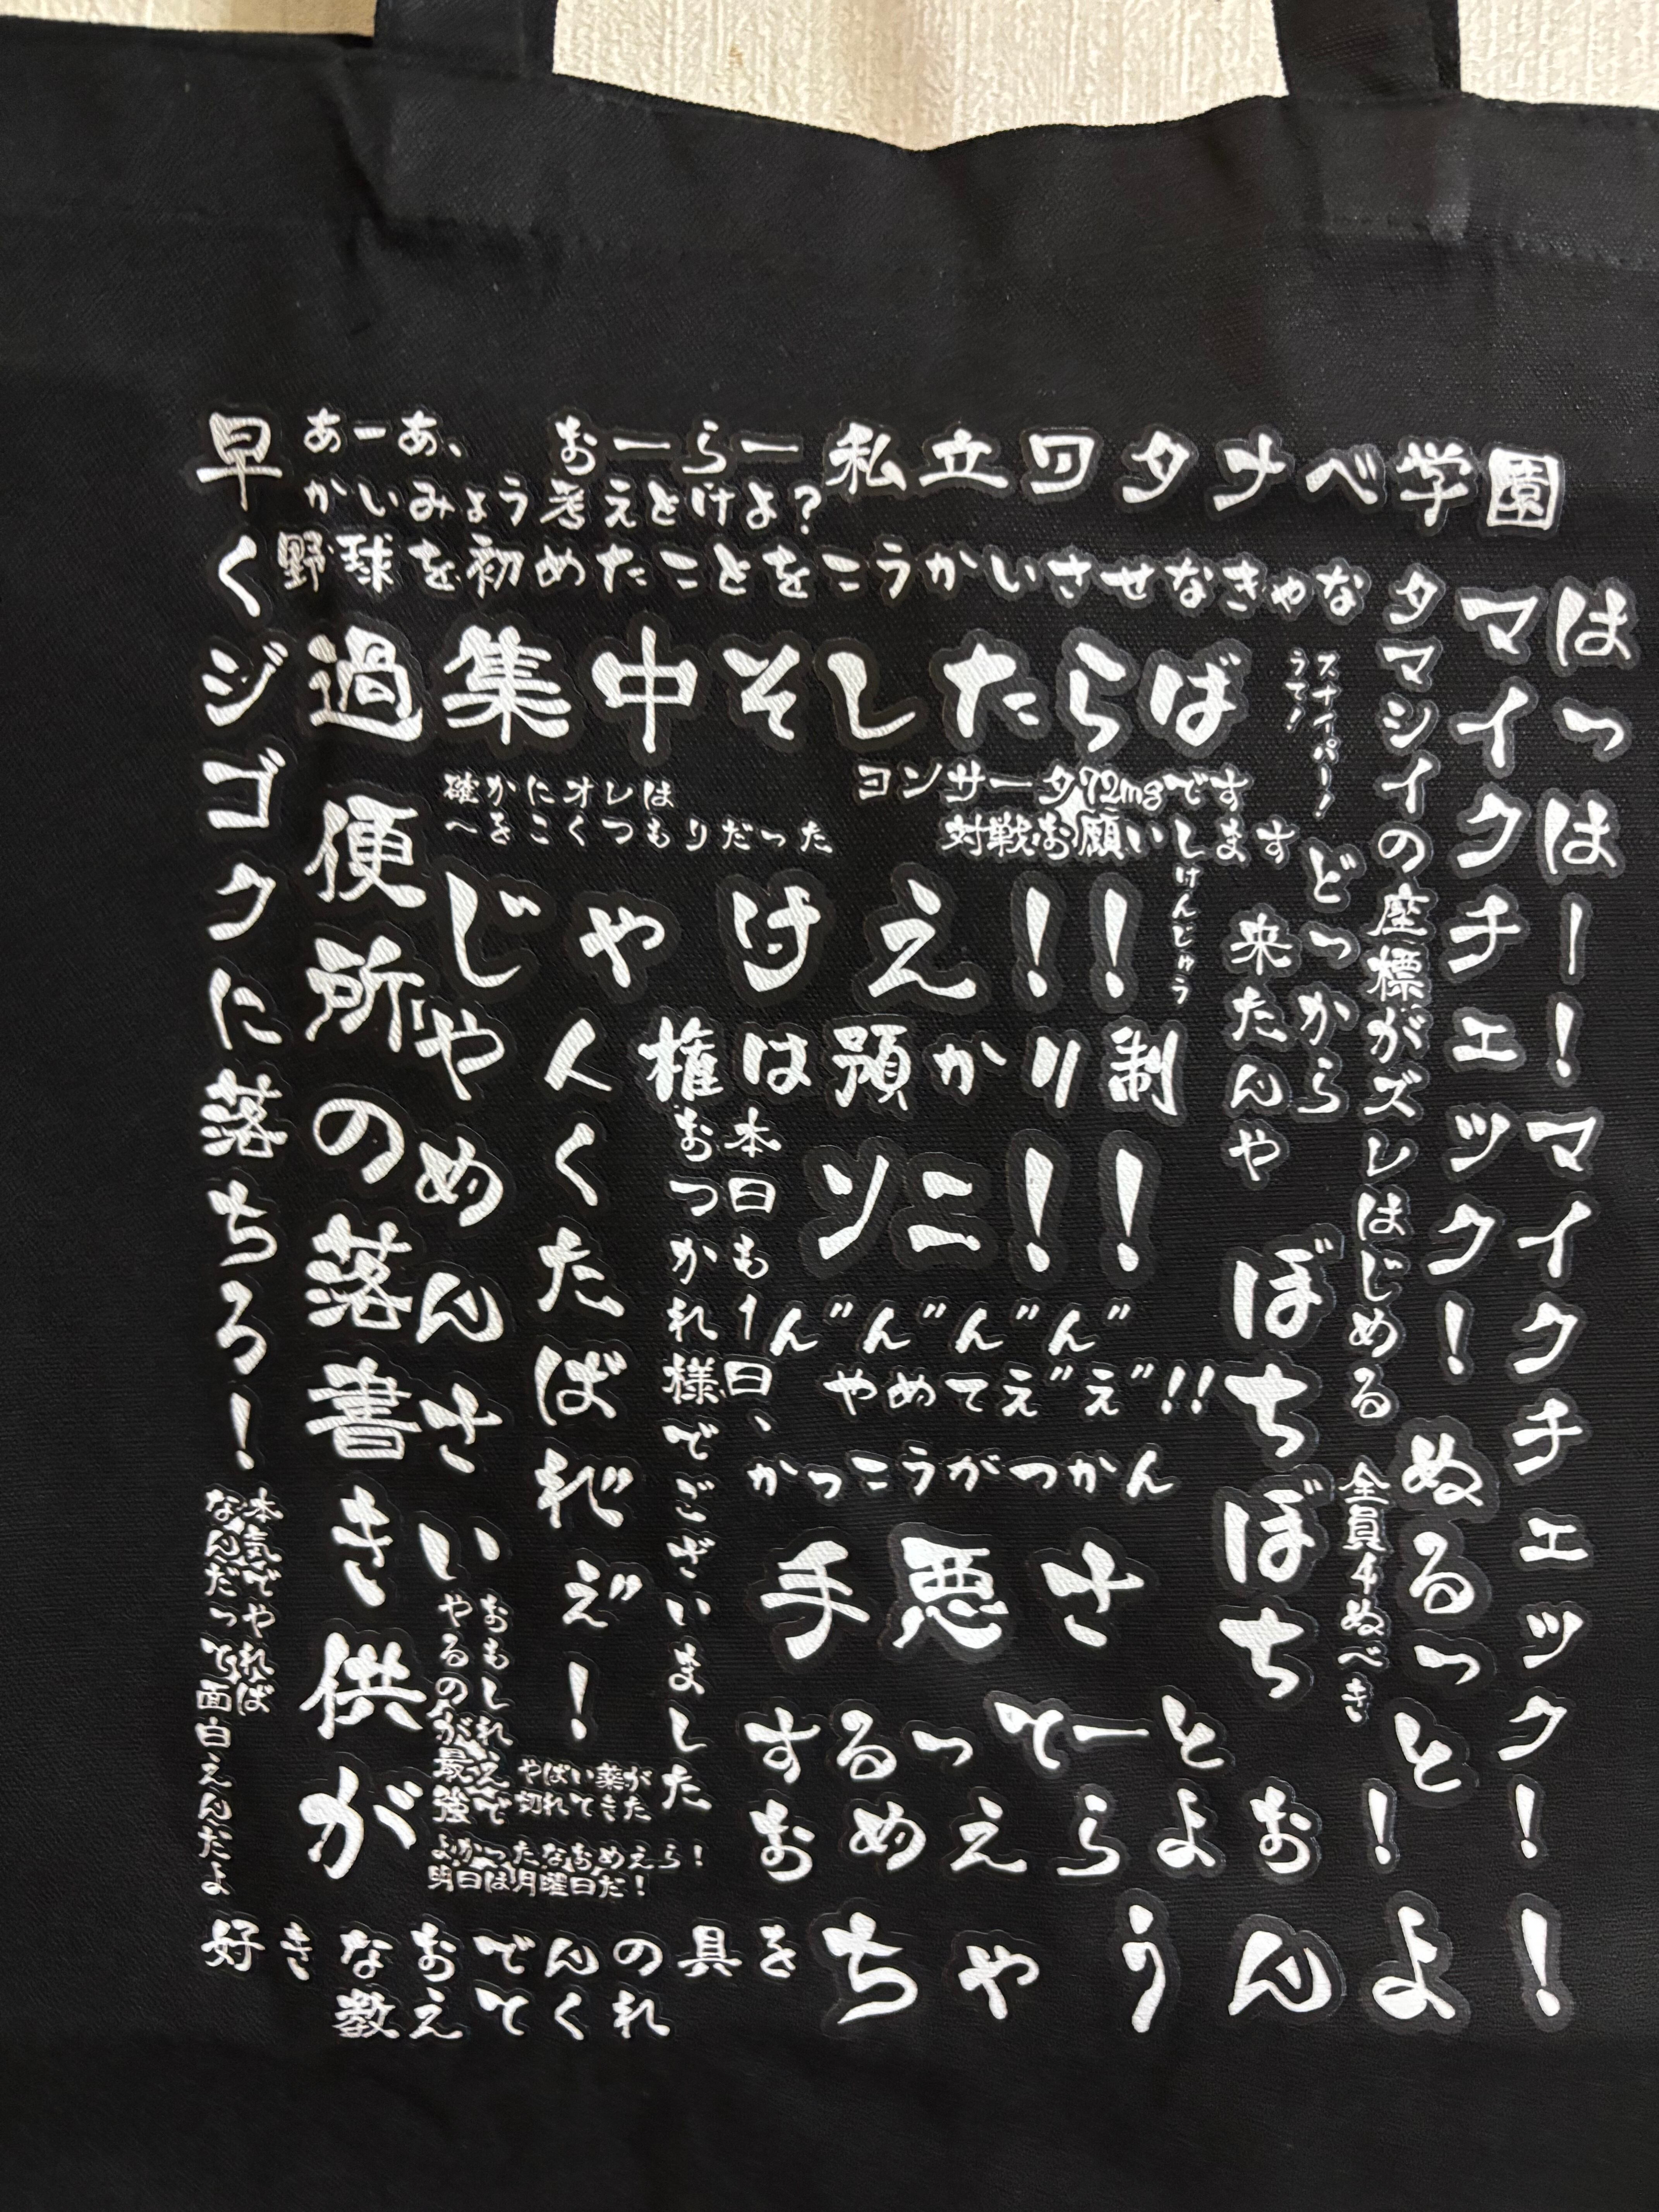 私立ワタナベ学園
おーらー
あーあ、
かいみょう考えとけよ?
野球を初めたことをこうかいさせなきゃな
はっはー!マイクチェック!
マイクチェック!
タマシイの座標がズレはじめる
スナイパー!
うて!
過集中そしたらば
コンサータ72mgです
対戦お願いします
確かにオレは
へをこくつもりだった
じゃけえ!!
けんじゅう
どっから
来たんや
人権は預かり制
ソニ!!
ん゛ん゛ん゛ん゛
やめてえ゛え゛!!
かっこうがつかん
手悪さ
するってーと
おめえらよお!
ちゃうんよ!
ぼちぼち
全員4ぬべき
ぬるっと!
本日も1日、
おつかれ様でございました
くたばれ゛え゛!
じゃやめんさい
便所の落書き供が
おもしれえで
やるのが最強
やばい薬が
切れてきた
よかったなおめえら!
明日は月曜日だ!
早くジゴクに落ちろ!
本気でやれば
なんだって面白えんだよ
好きなおでんの具を
教えてくれ